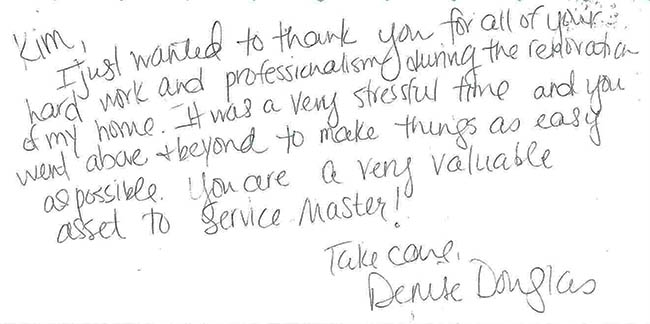 Kim,
I just wanted to thank you for all of your
hard work and professionalism during the restoration
of my home. It was a very stressful time and you
went above + beyond to make things as easy
as possible. You are a very valuable
asset to Service Master!
Take care,
Denise Douglas